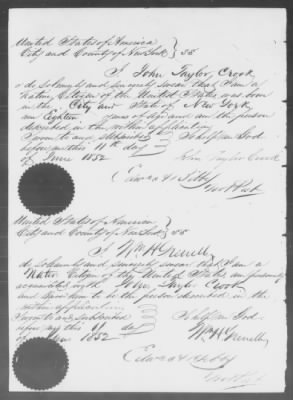 United States of America
City and County of New York } SS
I John Taylor Crook
do solemnly and sincerely swear that I am a
Native Citizen of the United States was born
in the City and State of New York
am Eighteen years of age and am the person
described in the within application
Sworn to and subscribed So help me God
before me this 11th day
of June 1852 John Taylor Crook
United States of America
City and County of New York } SS
I Wm H
do solemnly and sincerely swear that I am a
Native Citizen of the United States am personally
acquainted with the John Taylor Crook
and know him to be the person described in the
within application
Sworn to and subscribed So help me God
before me this 11 day
of June 1852 Wm H